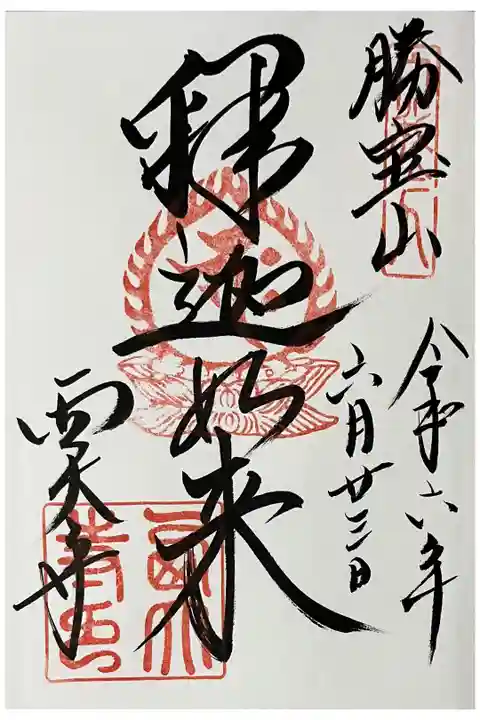 勝宝山
令和六年
六月廿三日
釋迦如来
西大寺